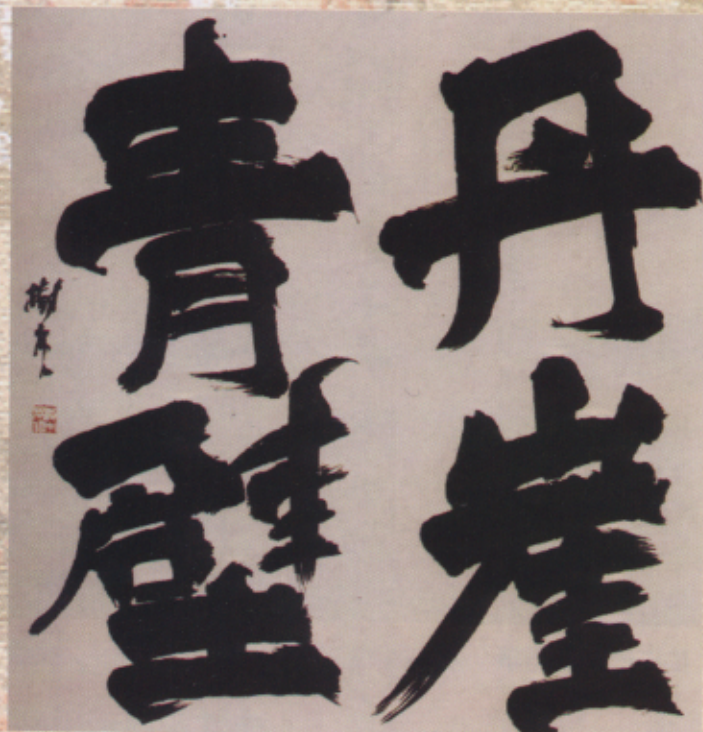 丹崖
青壁